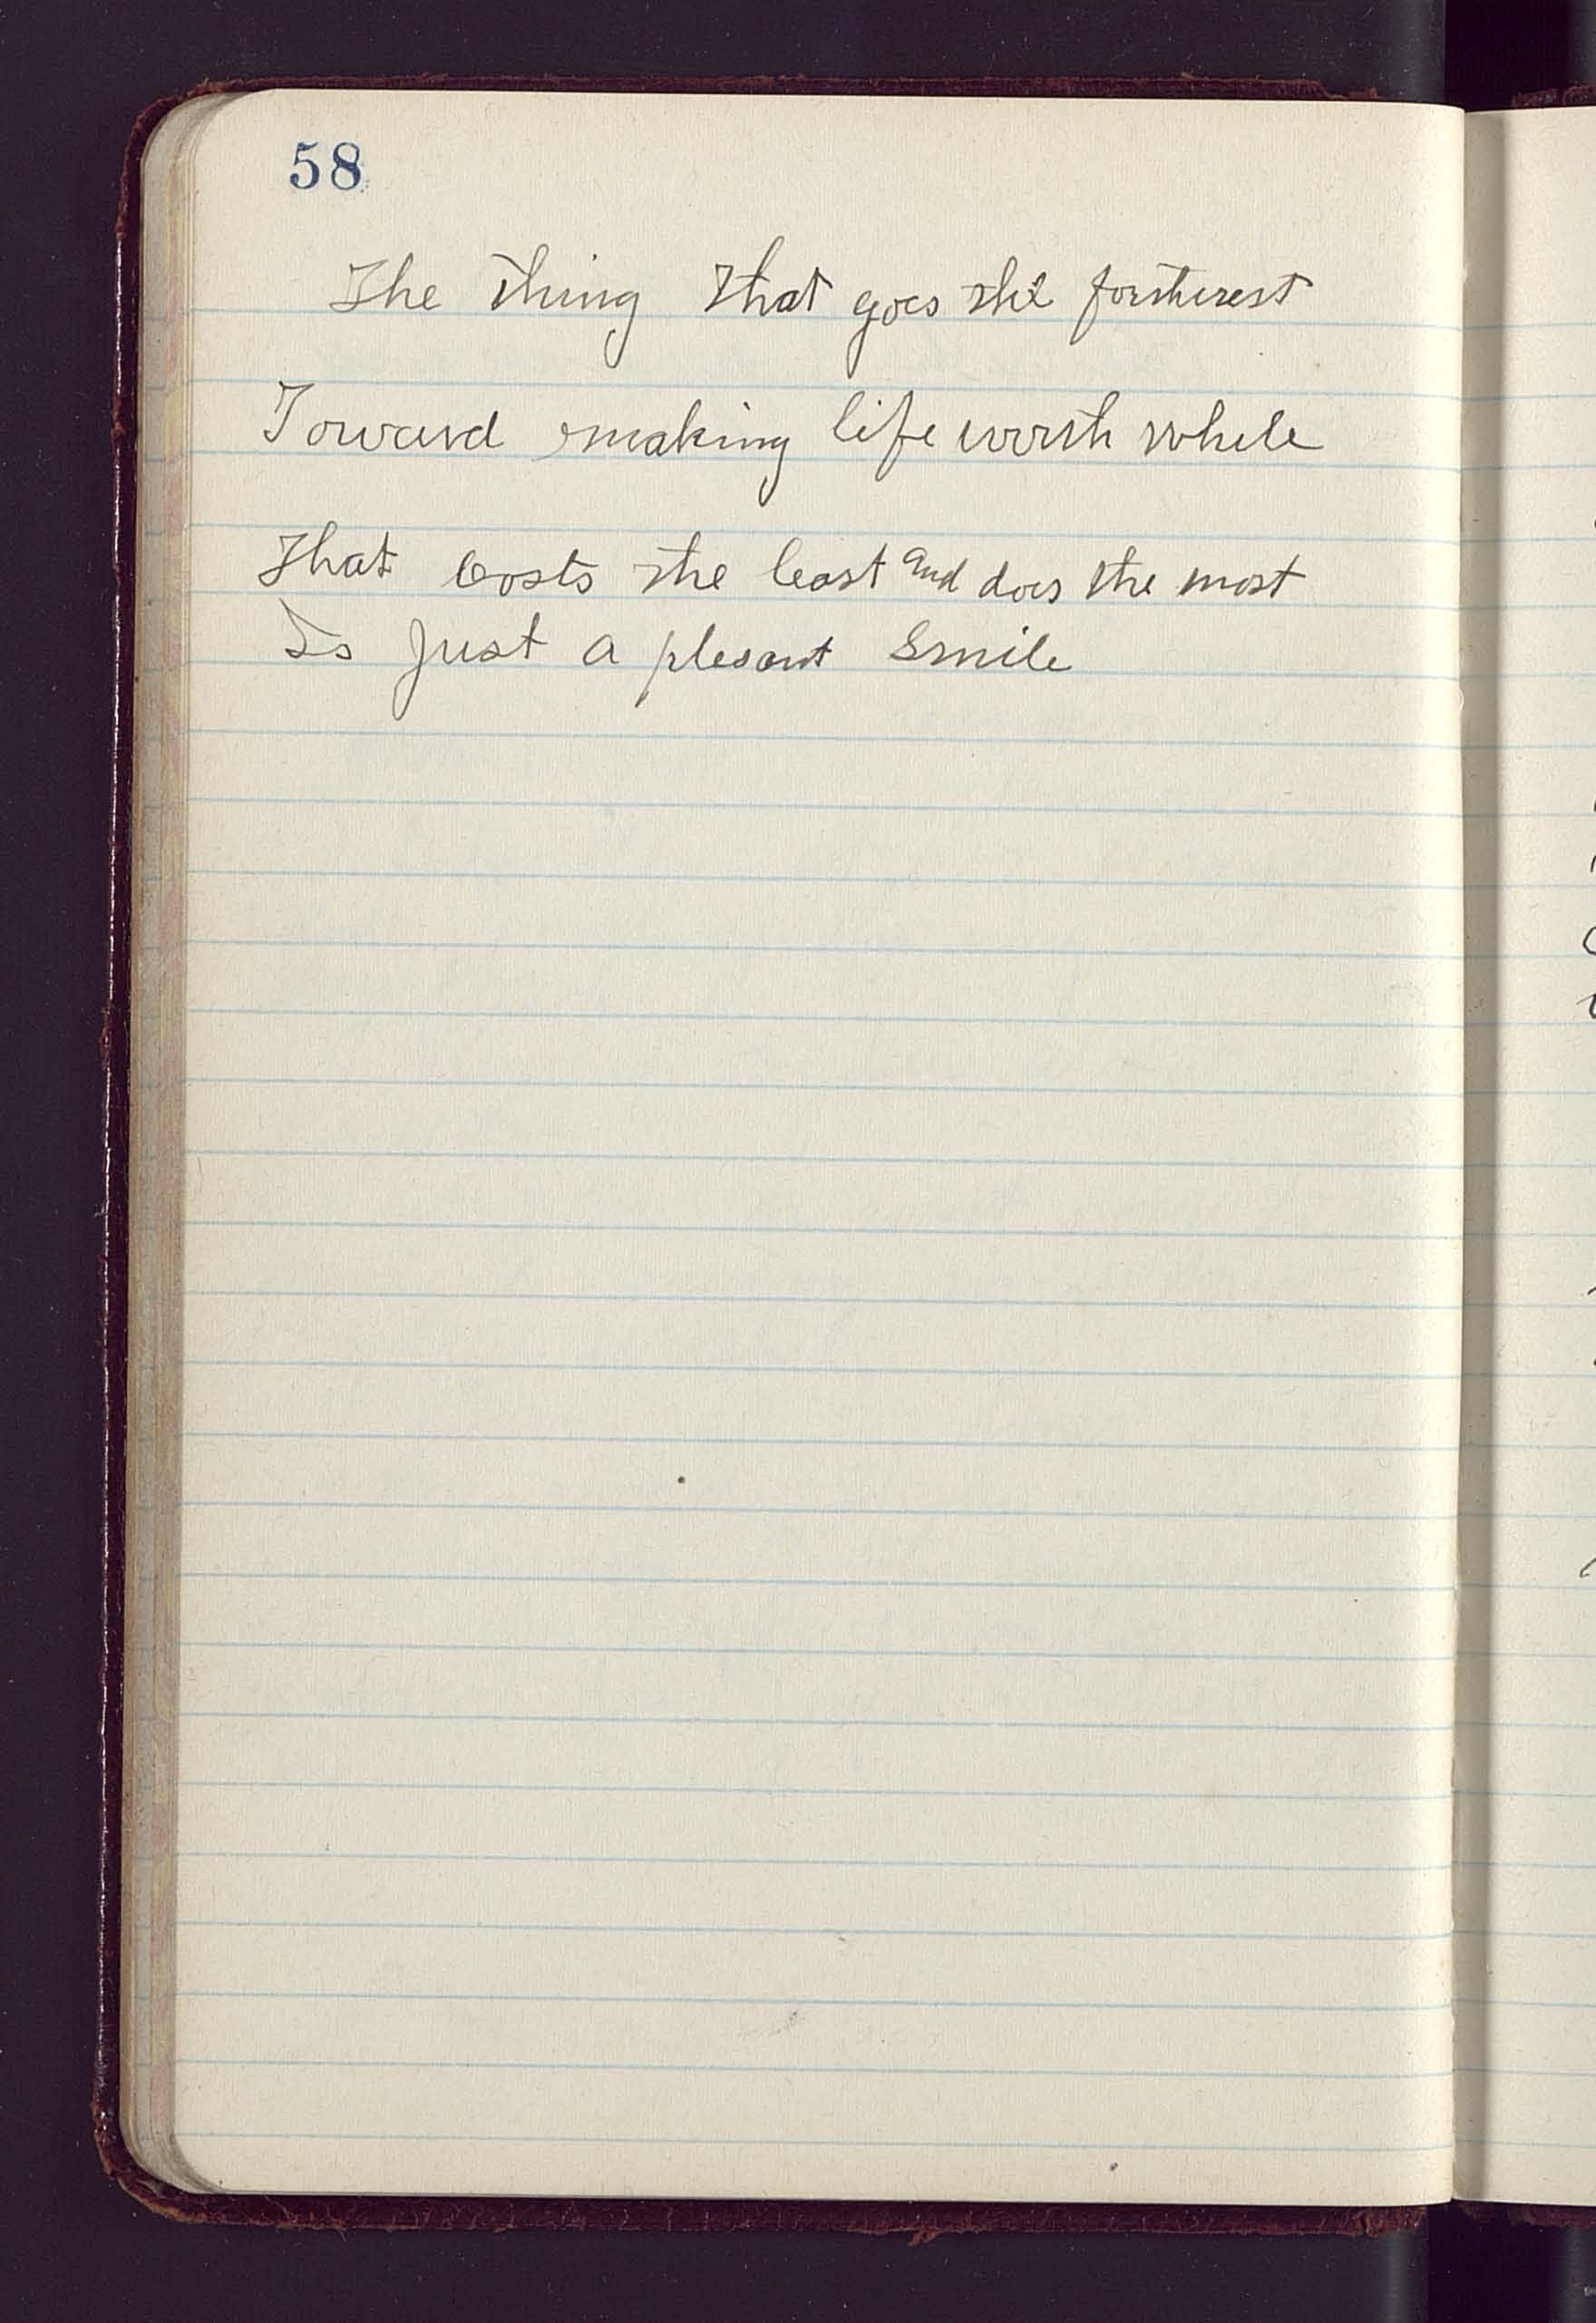 58
The thing that goes the fartherest
Toward making life worth while
That Costs the least and does the most
Is Just a plesant Smile